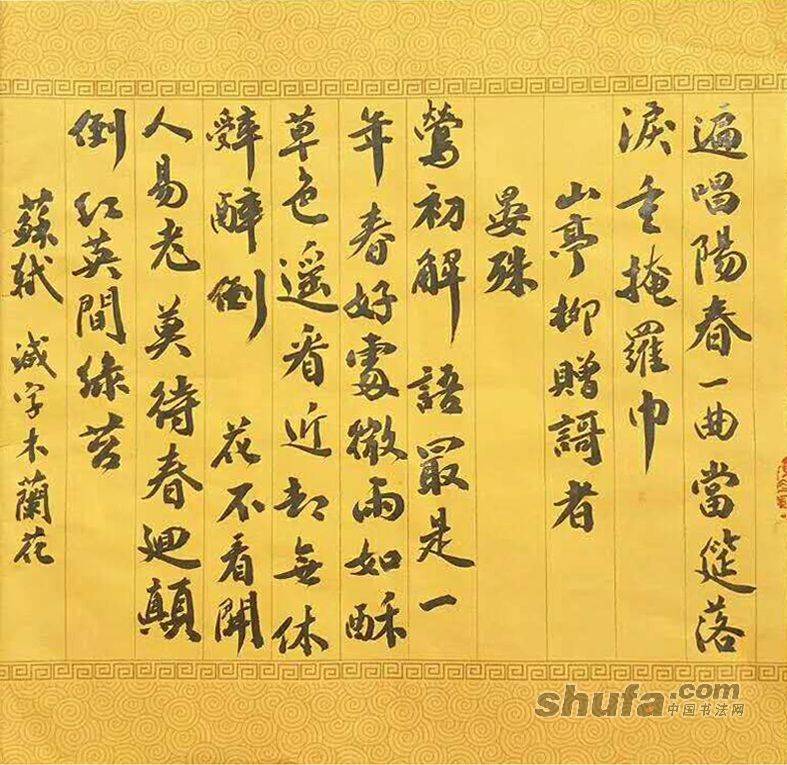 遍唱陽春一曲當筵落
淚重掩羅巾
山亭柳贈謌者
晏殊
鶯初解 語最是一
年春好處微雨如酥
草色遥看近却無休
辤醉倒 花不看開
人易老 莫待春迴顛
倒紅英間綠苔
蘇軾 減字木蘭花
shufa.com
中国书法网